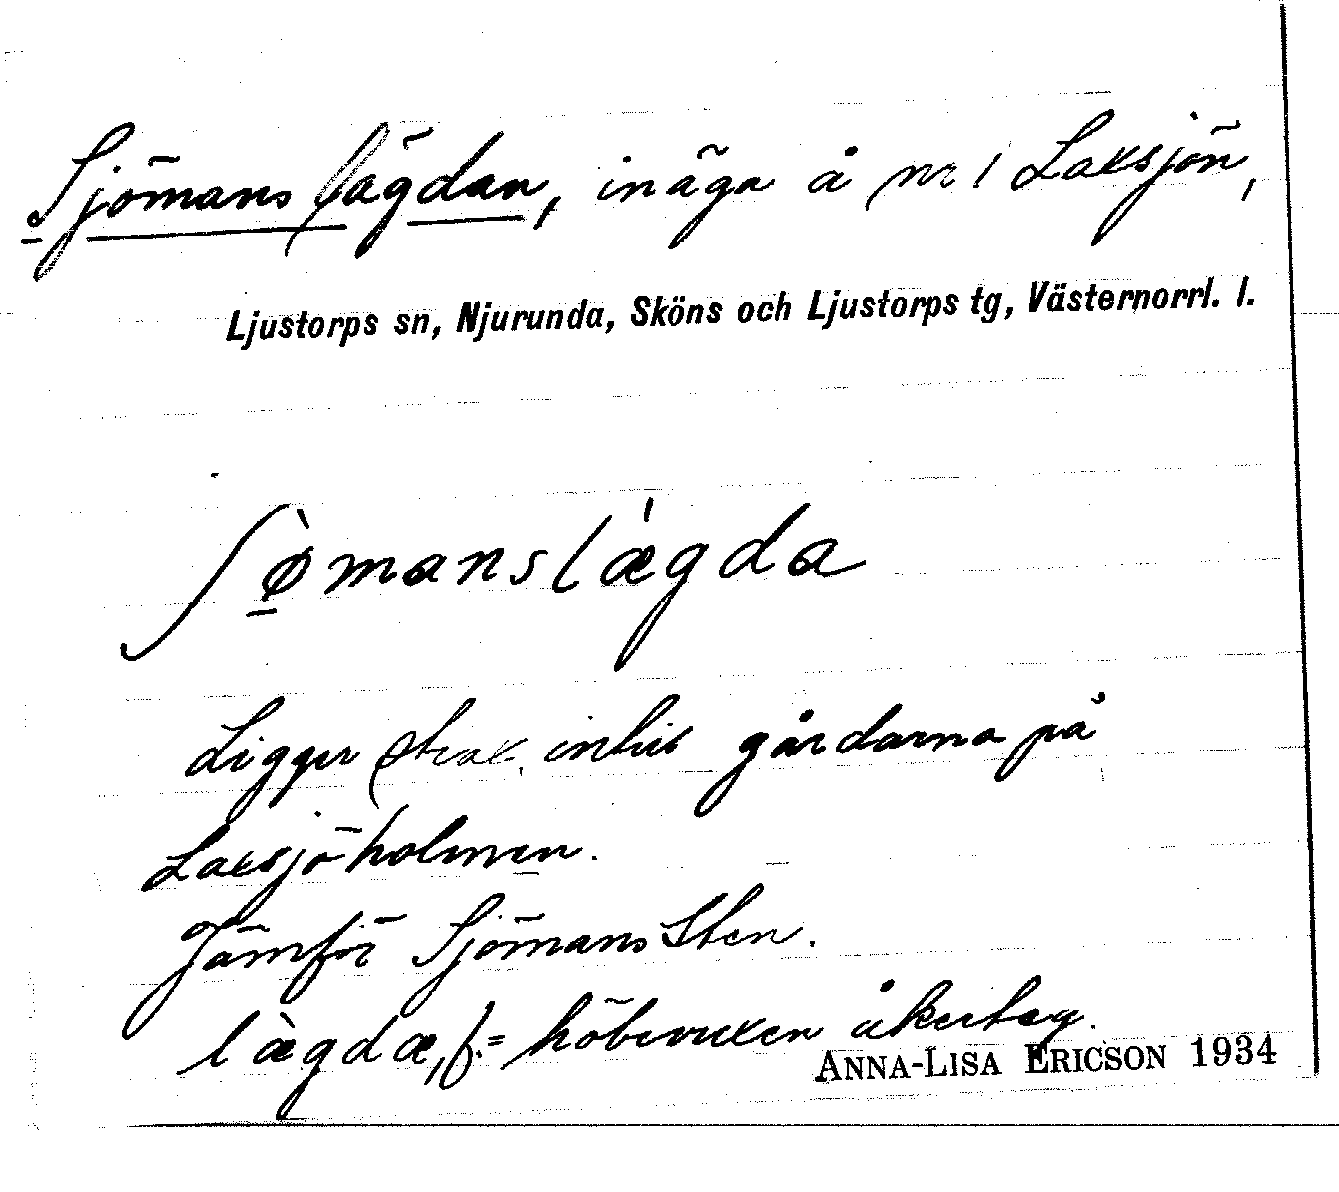 Sjömanslägdan, inäga å nr 1 Laxsjön,
Ljustorps sn, Njurunda, Sköns och Ljustorps tg, Västernorrl. l.
ʃø̠̀manslæ̀gda
Ligger strax intill gårdarna på
Laxsjöholmen.
Jämför Sjömans Sten.
læ̀gdæ, f. = höbevuxen åkerteg.
ANNA-LISA ERICSON 1934